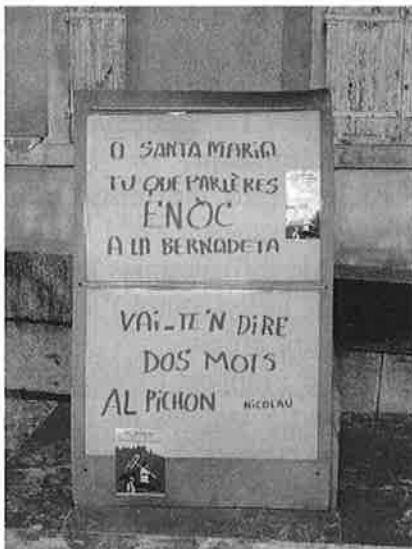 O SANTA MARIA
TU QUE PARLÈRES
ENÒC
A LA BERNADETA
VAI-TE'N DIRE
DOS MOTS
AL PICHON NICOLAU